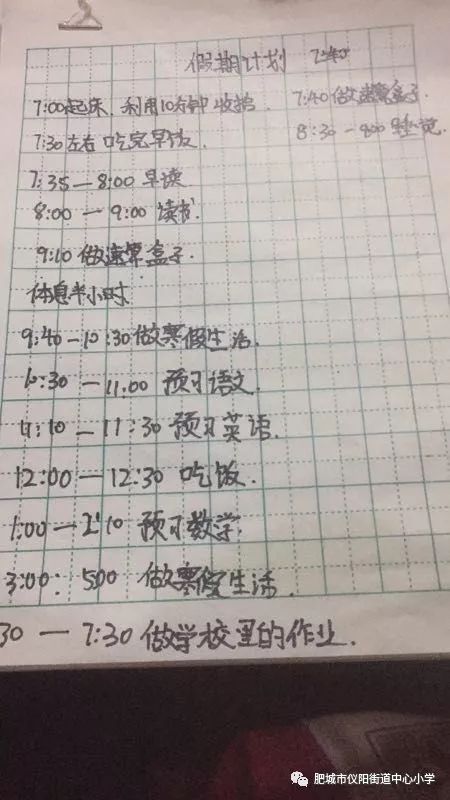 假期计划
7:00起床,利用10分钟收拾
7:30左右吃完早饭.
7:35—8:00 早读
8:00 — 9:00 读书
9:10 做速算盒子.
休息半小时
9:40—10:30做寒假生活.
10:30 — 11:00 预习语文.
11:10 — 11:30 预习英语.
12:00 — 12:30 吃饭.
1:00 — 2:10 预习数学.
3:00: 500 做寒假生活.
30 — 7:30 做学校里的作业.
7:40 做速算盒子.
8:30 — 900 睡觉.
肥城市仪阳街道中心小学